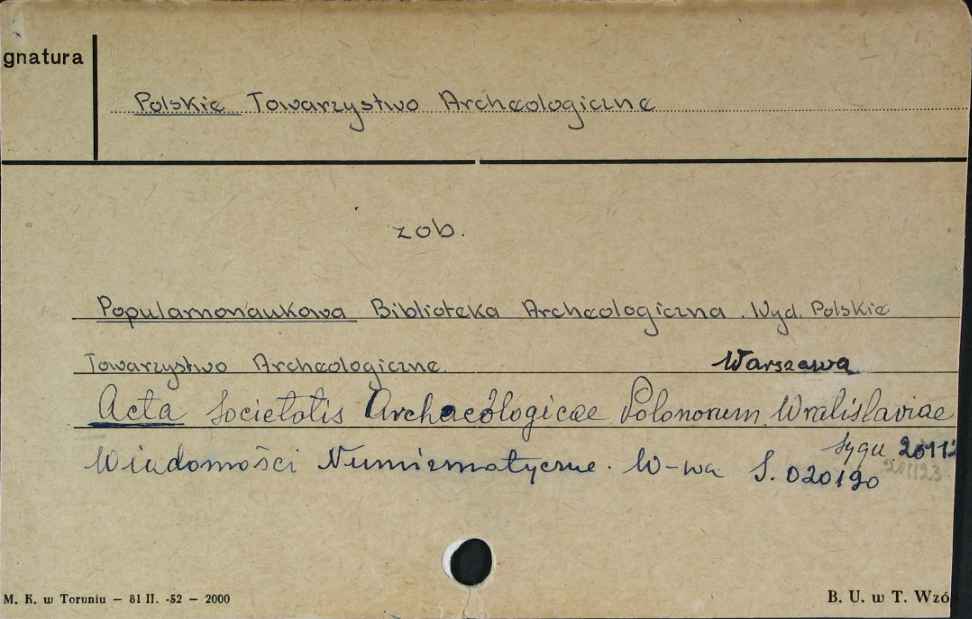 gnatura
Polskie Towarzystwo Archeologiczne
zob.
Popularnonaukowa Biblioteka Archeologiczna. Wyd. Polskie
Towarzystwo Archeologiczne. Warszawa
Acta Societatis Archaeologicae Polonorum Wratislaviae
Sygn 2011
Wiadomości Numizmatyczne. W-wa S. 020190
M. K. w Toruniu — 81 II. -52 — 2000
B. U. w T. Wzó